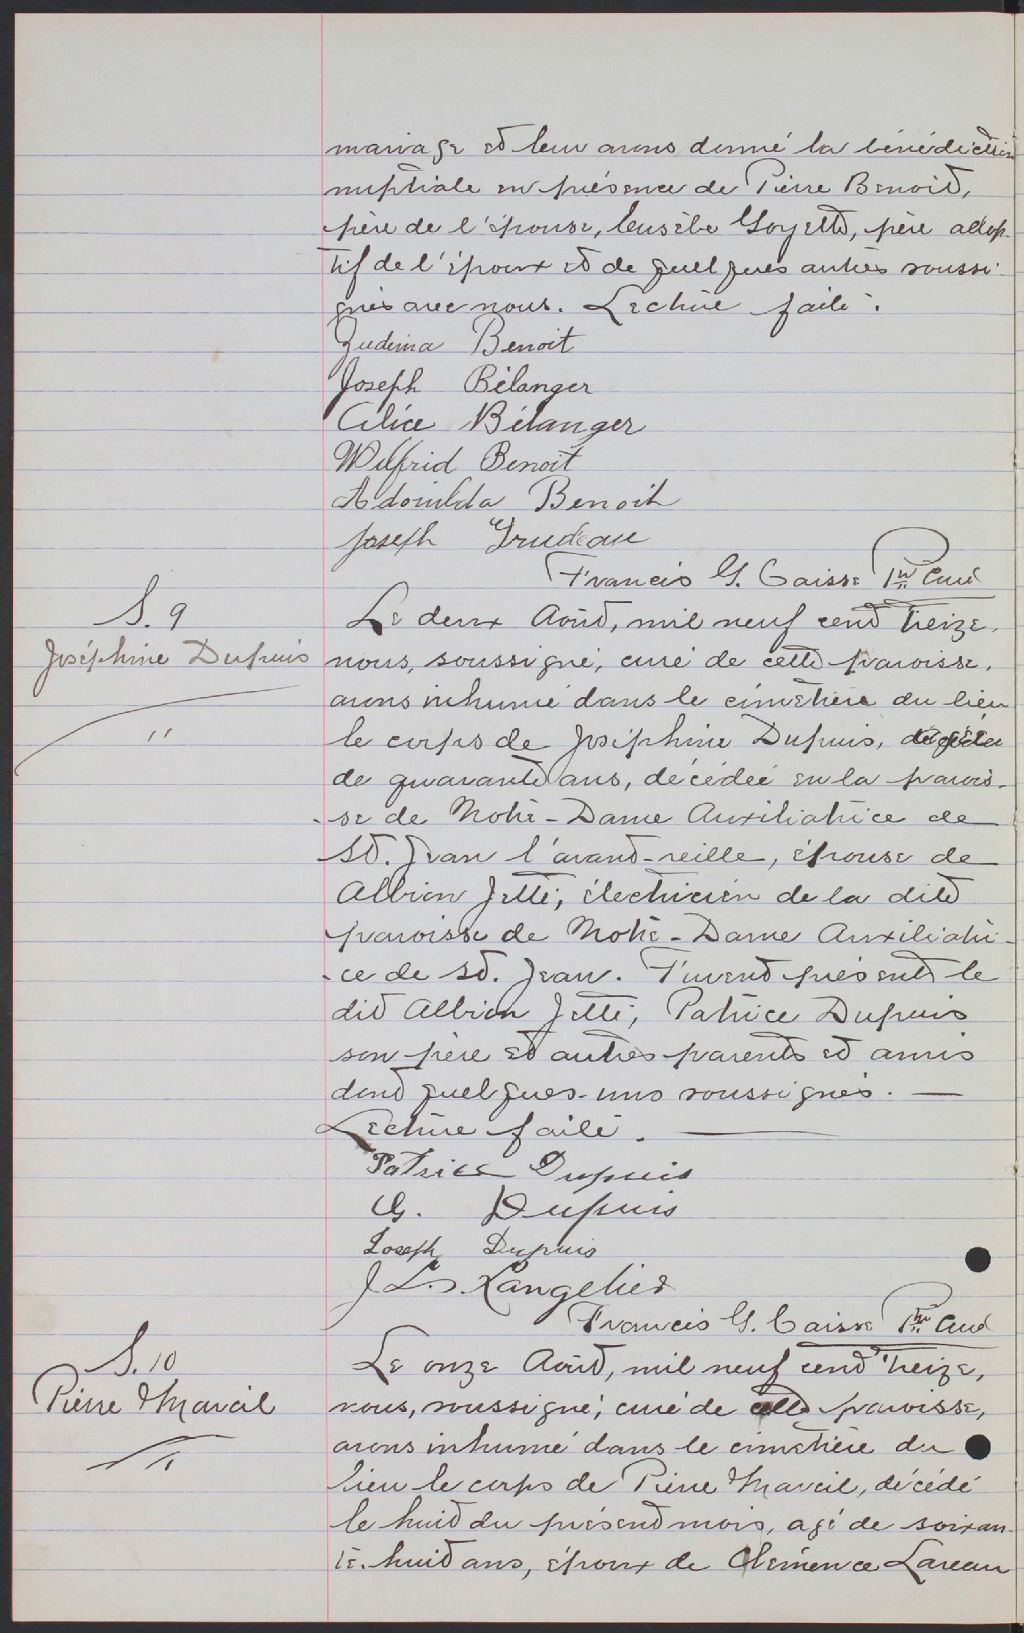 mariage et leur avons donné la bénédiction
nuptiale en présence de Pierre Benoit,
père de l'épouse, Eusèbe Goyette, père adop-
tif de l'époux et de quelques autres soussi-
gnés avec nous. Lecture faite.
Zudema Benoit
Joseph Bélanger
Alice Bélanger
Wilfrid Benoit
Adouilda Benoit
Joseph Trudeau
Francis G. Caisse Ptre Curé
S. 9
Joséphine Dupuis
"
Le deux Août, mil neuf cent treize,
nous, soussigné, curé de cette paroisse,
avons inhumé dans le cimetière du lieu
le corps de Joséphine Dupuis, âgée
de quarante ans, décédée en la parois-
-se de Notre-Dame Auxiliatrice de
St. Jean l'avant-veille, épouse de
Albion Jetté, électricien de la dite
paroisse de Notre-Dame Auxiliatri-
-ce de St. Jean. Furent présents le
dit Albion Jetté, Patrice Dupuis
son père et autres parents et amis
dont quelques-uns soussignés. —
Lecture faite. —
Patrice Dupuis
G. Dupuis
Joseph Dupuis
J L. S. Langelier
Francis G. Caisse Ptre Curé
S. 10
Pierre Marcil
"
Le onze Août, mil neuf cent treize,
nous, soussigné, curé de cette paroisse,
avons inhumé dans le cimetière du
lieu le corps de Pierre Marcil, décédé
le huit du présent mois, agé de soixan-
te-huit ans, époux de Clémence Lareau